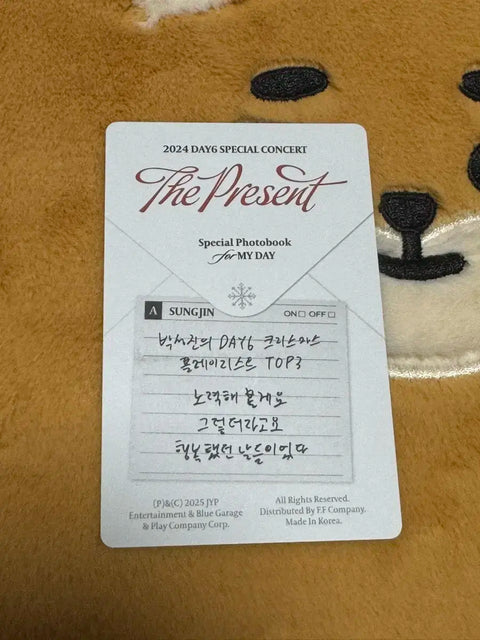 2024 DAY6 SPECIAL CONCERT
The Present
Special Photobook
for MY DAY
A SUNGJIN ON□ OFF□
박성진의 DAY6 크리스마스
플레이리스트 TOP3
노력해 볼게요
그럴 더라고요
행복했던 날들이었다
(P)&(C) 2025 JYP
Entertainment & Blue Garage
& Play Company Corp.
All Rights Reserved.
Distributed By F.F Company.
Made In Korea.